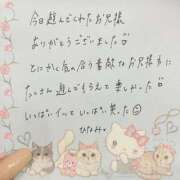 今日遊んでくれたお兄様
ありがとうございました♡
とにかく気の合う素敵なお兄様に
たっさん遊んでもらえて楽しかった♡
いっぱいイッていっぱい笑った☺
ひなみ♡